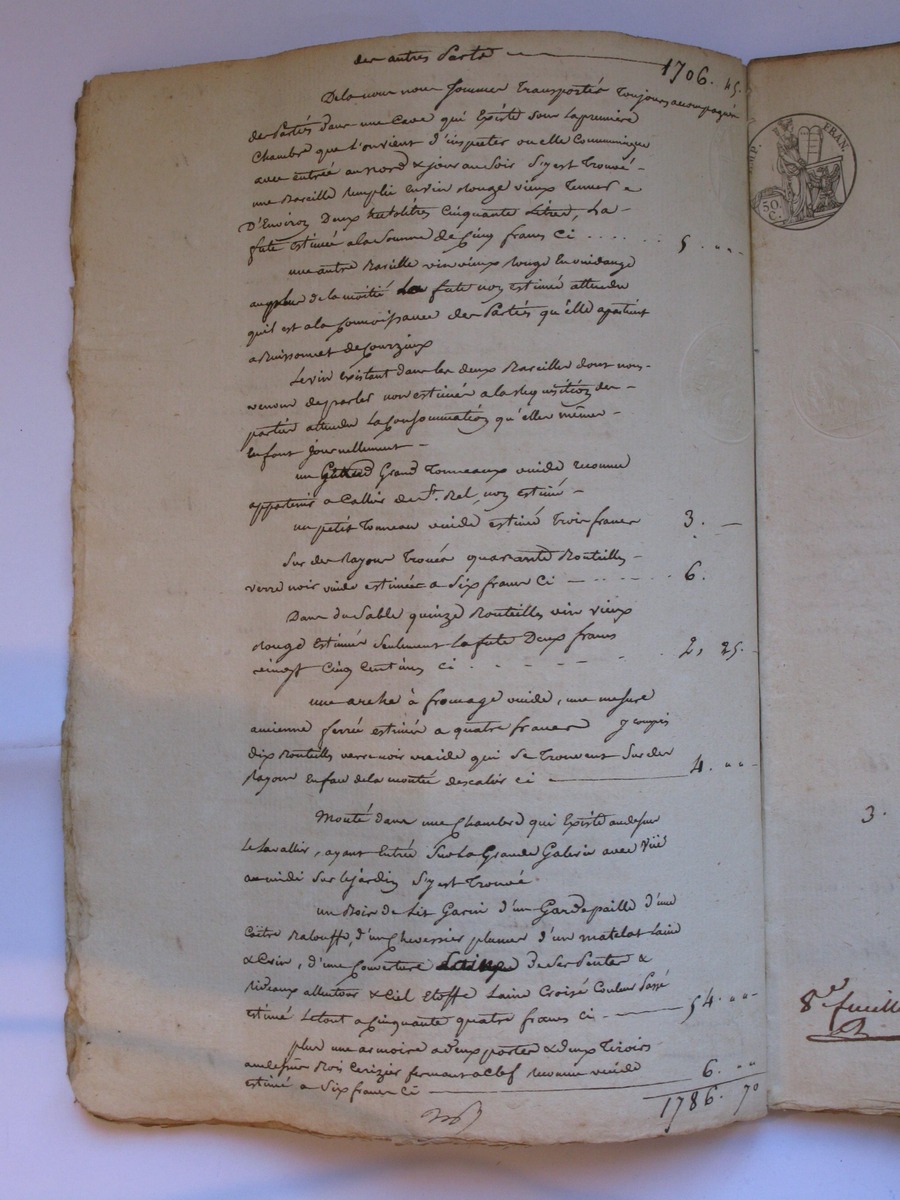 des autres Parts 1706. 45.
Dela nous nous sommes Transportés Toujours acompagnés
des Parties dans une Cave qui Existe sous la premiere
Chambre que l'on vient d'inspecter ou elle Communique
avec entrée au nord & jour au Soir S'y est Trouvé
une Bareille Remplie en vin Rouge vieux
D'Environ Deux hectolitres Cinquante Litres, La
fute estimée a la Somme de Cinq francs Ci ...... 5. ""
une autre Bareille vin vieux Rouge En vuidange
au de la moitié La fute non estimée attendu
qu'il est a la Connoissance des Parties qu'elle apartient
a Buissonnet de Courzieux
Le vin existant dans les deux Bareilles dont nous
venons de parler non estimée a la Requisition des
parties attendu la Consommation qu'elles mêmes
En font journellement
un Grand Tonneaux vuide reconnu
appartenir a de St. Bel, non estimé
un petit Tonneau vuide estimé Trois francs 3. —
Sur des Rayons Trouvés quarante Bouteilles
verre noir vuide estimées a Six francs Ci — ...... 6.
Dans du Sable quinze Bouteilles vin vieux
Rouge Estimés Seulement la fute Deux francs
vingt Cinq Centimes Ci ...... 2, 25.
une arche à fromage vuide, une mesure
ancienne ferrée estimée a quatre francs y compris
dix Bouteilles verre noir vuide qui se Trouvent Sur des
Rayons En face de la montée descalier Ci — 4. ""
Monté dans une Chambre qui Existe au dessus
Le , ayant Entrée Sur La Grande Galerie avec Vüe
au midi Sur le jardin S'y est Trouvé
un Bois de Lit Garni d'un Gardepaille d'une
Coëtre Balouffe, d'un Chevessier plumes d'un matelat Laine
& Crin, d'une Couverture Laine de Ses Pentes &
Rideaux allentour & Ciel Etoffe Laine Croisé Couleur Passé
estimé Le tout a Cinquante quatre francs Ci — 54. ""
plus une armoire a deux portes & deux Tiroirs
au dessus Bois Cerizier fermant a Clef reconnu vuide
estimé a Six francs Ci — 6. ""
1786. 70
IMP. FRAN.
50 C.
3.
8e. feuille